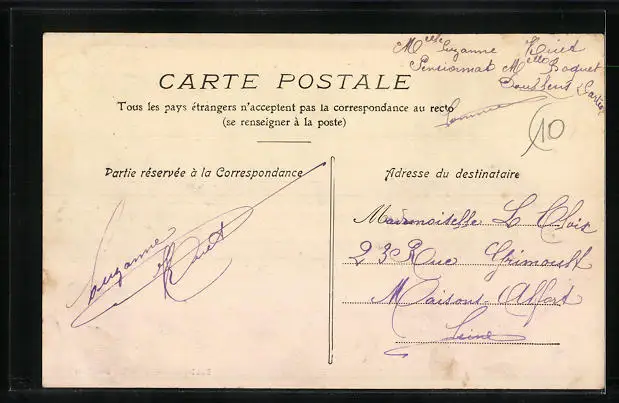 Melle Suzanne Huet
Pensionnat Melle Boquet
Somme
10
CARTE POSTALE
Tous les pays étrangers n'acceptent pas la correspondance au recto
(se renseigner à la poste)
Partie réservée à la Correspondance
Adresse du destinataire
Suzanne
Huet
Mademoiselle L
23 Rue Grimoult
Maisons-Alfort
Seine